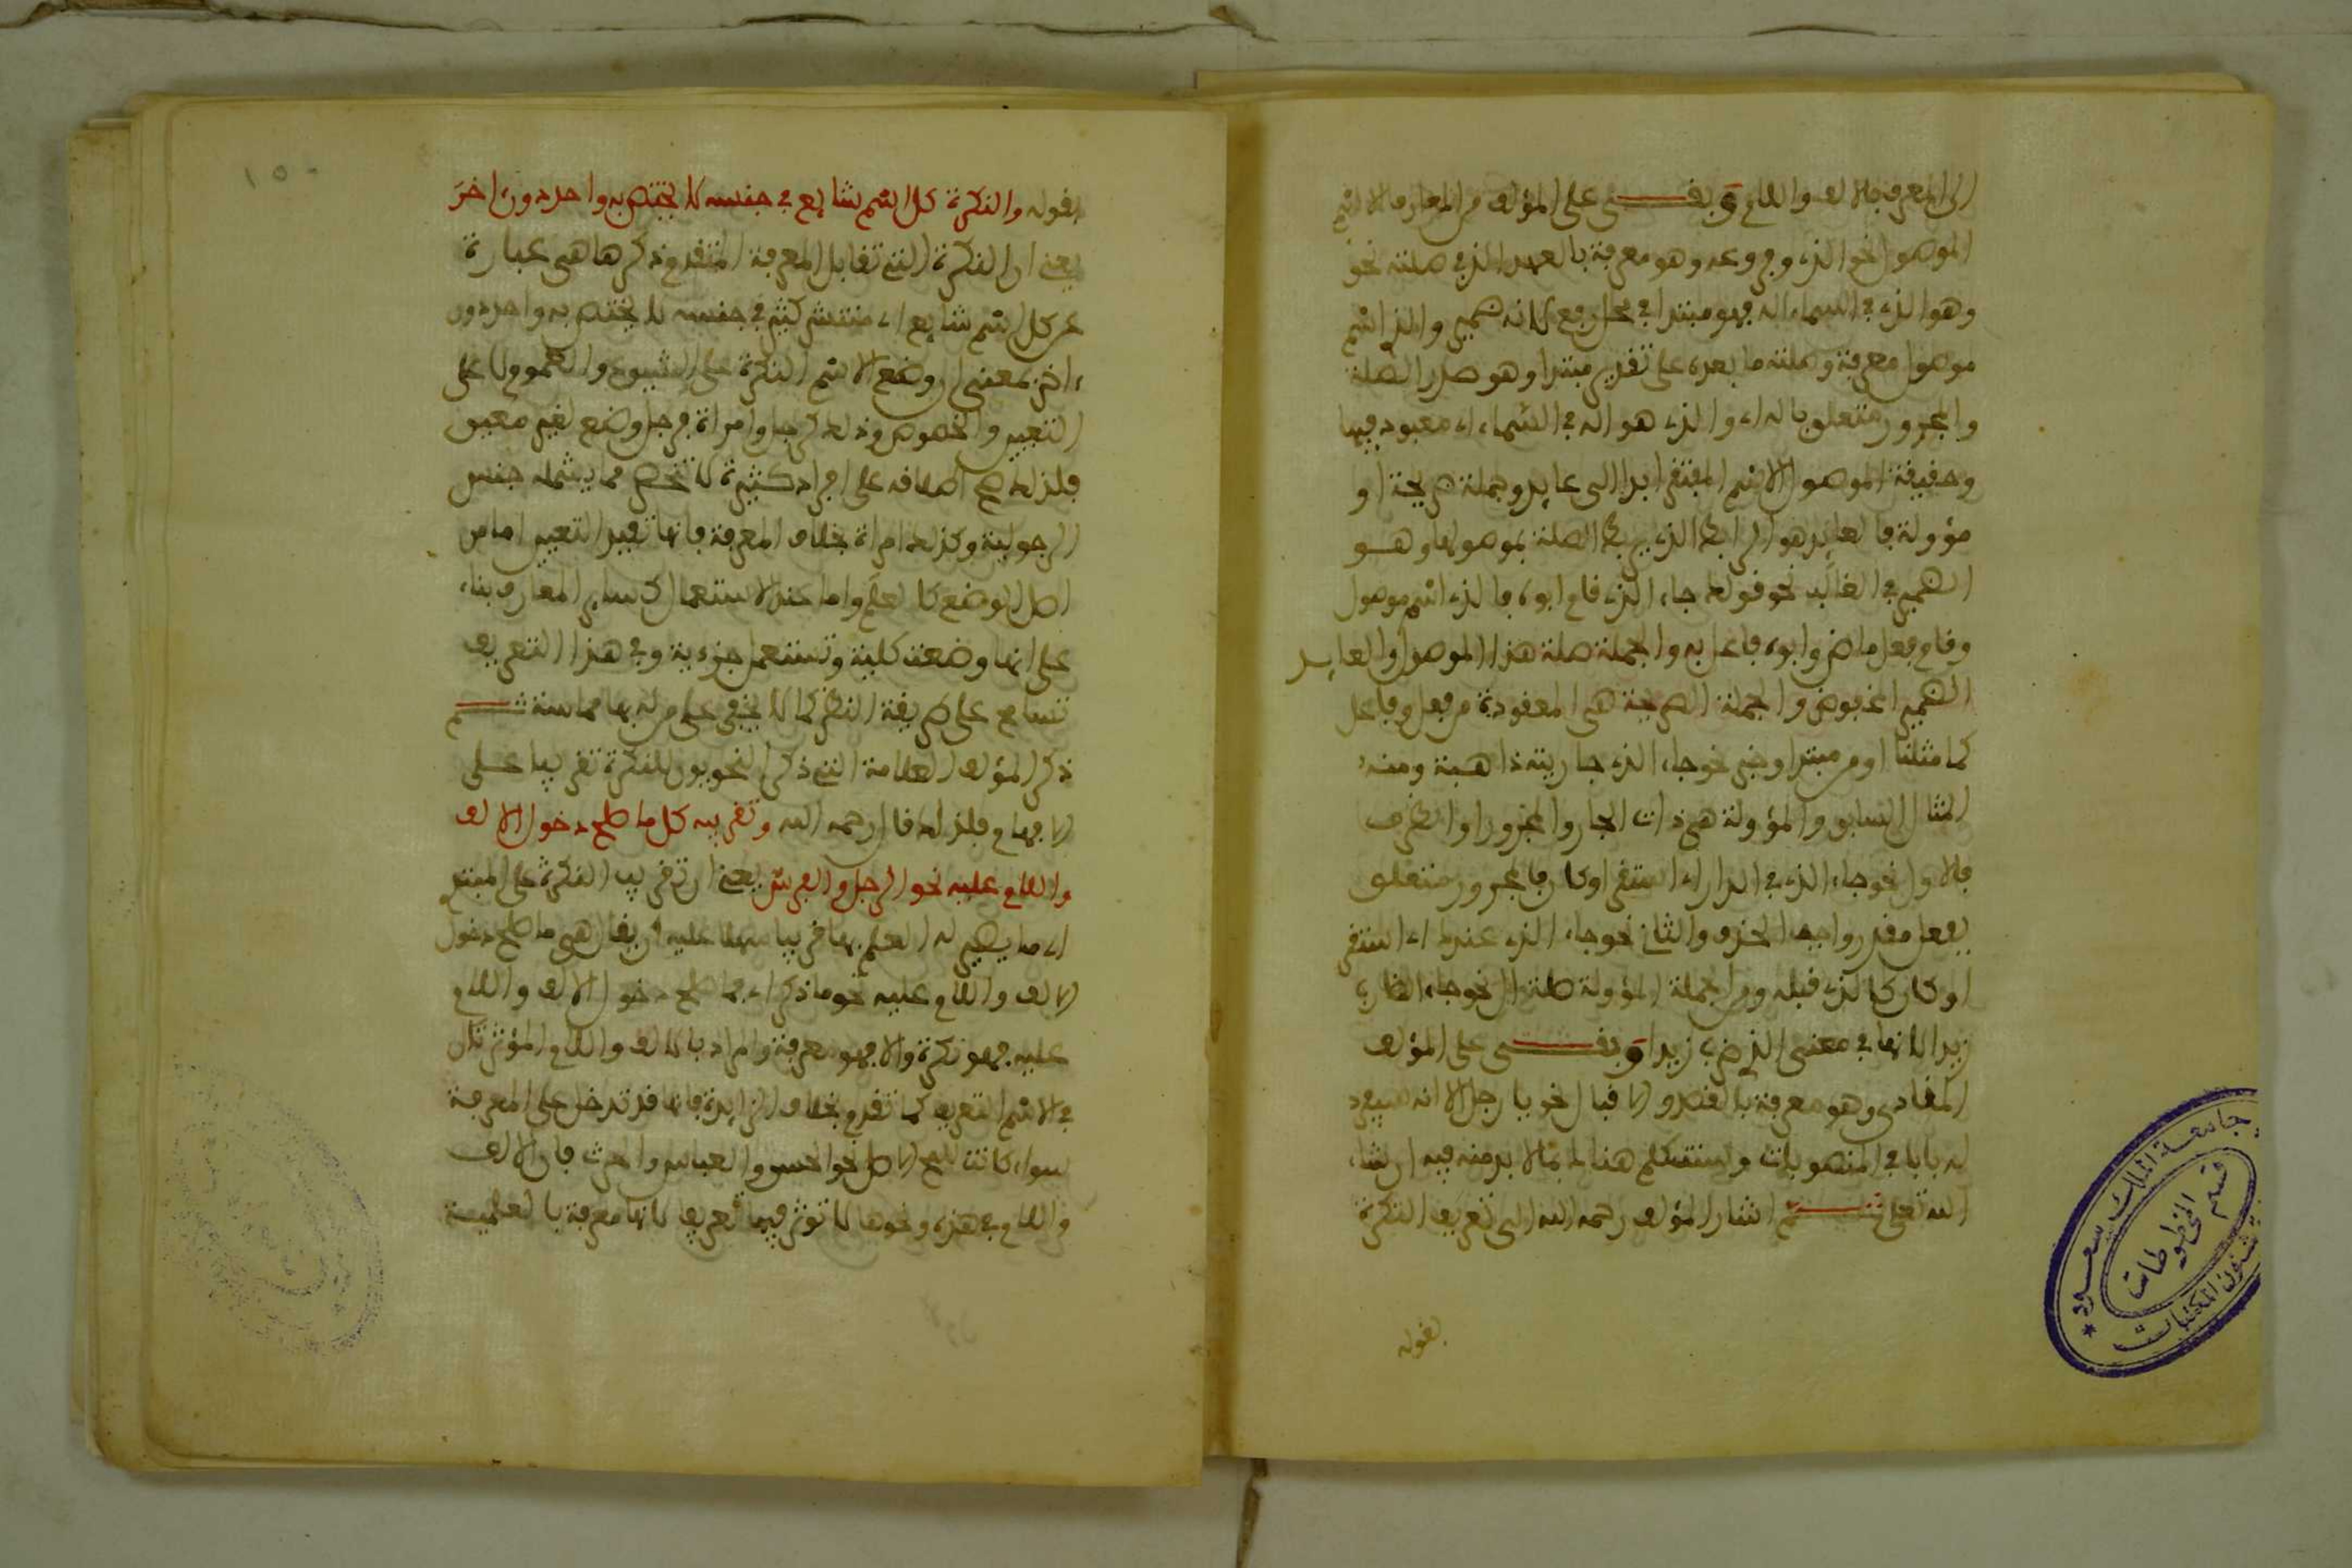 الى المعرف بالالف واللام وبقي على المؤلف من المعارف الاسم
الموصول نحو الذي وفروعه وهو معرفة بالعهد الذي في صلته نحو
وهو الذي في السماء اله فهو مبتدا في محل رفع لانه ضمير والذي اسم
موصول معرفة وصلته ما بعده على تقدير مبتدا وهو صدر الصلة
والمجرور متعلق باله اي والذي هو اله في السماء اي معبود فيها
وحقيقة الموصول الاسم المفتقر ابدا الى عايد وجملة صريحة او
مؤولة فالعايد هو الرابط الذي يربط الصلة بموصولها وهو
الضمير في الغالب نحو قولك جاء الذي قام ابوه فالذي اسم موصول
وقام فعل ماض وابوه فاعل به والجملة صلة هذا الموصول والعايد
الضمير المخفوض والجملة الصريحة هي المعقودة من فعل وفاعل
كما مثلنا او من مبتدا وخبر نحو جاء الذي جاريته ذاهبة ومنه
المثال السابق والمؤولة هي ذات الجار والمجرور او الظرف
فالاول نحو جاء الذي في الدار اي استقر او كان فالمجرور متعلق
بفعل مقدر واجب الحذف والثاني نحو جاء الذي عندك اي استقر
او كان كالذي قبله ومن الجملة المؤولة صلة ال نحو جاء الضارب
زيدا لانها في معنى الذي ضرب زيدا وبقي على المؤلف
المنادى وهو معرفة بالقصد والاقبال نحو يا رجل الا انه سيعقد
له بابا في المنصوبات وسنتكلم هنالك بما لا بد منه فيه ان شاء
الله تعلى ثم اشار المؤلف رحمه الله الى تعريف النكرة
بقوله
بقوله والنكرة كل اسم شايع في جنسه لا يختص به واحد دون اخر
يعني ان النكرة التي تقابل المعرفة المتقدم ذكرها هي عبارة
عن كل اسم شايع اي منتشر كثير في جنسه لا يختص به واحد دون
اخر بمعنى ان وضع الاسم النكرة على الشيوع والعموم لا على
التعيين والخصوص وذلك كرجل وامراة فرجل وضع لغير معين
فلذلك صح اطلاقه على افراد كثيرة لا تنحصر مما يشمله جنس
الرجولية وكذلك امراة بخلاف المعرفة فانها تفيد التعيين اما من
اصل الوضع كالعلم واما عند الاستعمال كساير المعارف بناء
على انها وضعت كلية وتستعمل جزءية وفي هذا التعريف
تسامح على طريقة النظر كما لا يخفى على من له بها مماسة ثم
ذكر المؤلف العلامة التي ذكر النحويون للنكرة تقريبا على
الافهام فلذلك قال رحمه الله وتقريبه كل ما صلح دخول الالف
واللام عليه نحو الرجل والفرس يعني ان تقريب النكرة على المبتدئ
اي ما يصير له العلم بها قريبا سهلا عليه ان يقال هي ما صلح دخول
الالف واللام عليه نحو ما ذكر اي فما صلح دخول الالف واللام
عليه فهو نكرة والا فهو معرفة والمراد بالالف واللام المؤثرتان
في الاسم التعريف كما تقدم بخلاف الزايدة فانها قد تدخل على المعرفة
سواء كانت للمح الاصل نحو الحسن والعباس والحرث فان الالف
واللام في هذه ونحوها لا تؤثر فيها تعريفا لانها معرفة بالعلمية
١٥٠
جامعة الملك سعود
قسم المخطوطات
شئون المكتبات